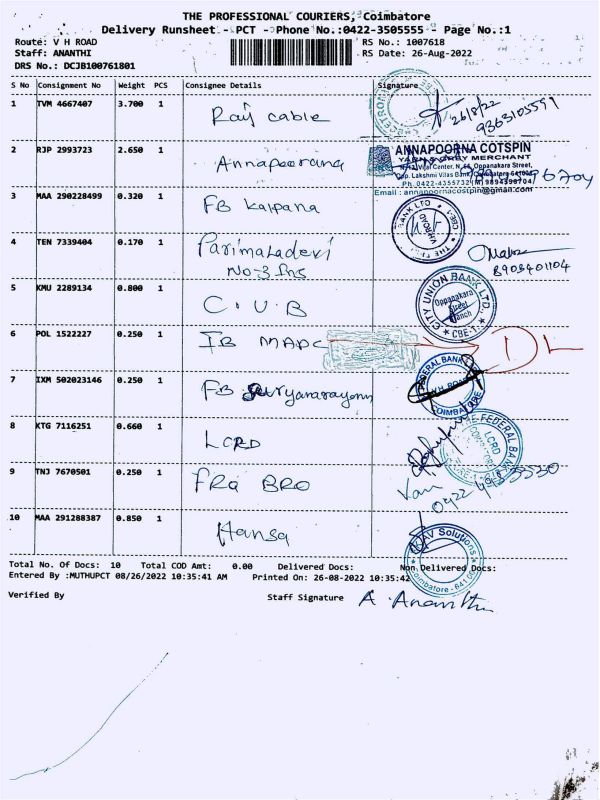 THE PROFESSIONAL COURIERS, Coimbatore
Delivery Runsheet - PCT - Phone No.:0422-3505555 - Page No.:1
Route: V H ROAD RS No.: 1007618
Staff: ANANTHI RS Date: 26-Aug-2022
DRS No.: DCJB100761801
S No Consignment No Weight PCS Consignee Details Signature
1 TVM 4667407 3.700 1 Raj cable 26/8/22
9363105591
2 RJP 2993723 2.650 1 Annapoorana
ANNAPOORNA COTSPIN
YARN & GREY MERCHANT
Opp. Lakshmi Vilas Bank, Coimbatore
Ph. 0422-4355732 M 9894396704
Email : annapoornacotspin@gmail.com
3 MAA 290228499 0.320 1 FB Kalpana
4 TEN 7339404 0.170 1 Parimaladevi
No-3 Ins 8903401104
5 KMU 2289134 0.800 1 C.U.B
CITY UNION BANK LTD.
Oppanakara
Street
Branch
CBE-1
6 POL 1522227 0.250 1 IB MADC DL
7 IXM 502023146 0.250 1 FB Suryanarayonn
FEDERAL BANK
V.H. ROAD
COIMBATORE
8 KTG 7116251 0.660 1 LCRD
THE FEDERAL BANK
LCRD
9 TNJ 7670501 0.250 1 FRa BRO
Van
10 MAA 291288387 0.850 1 Hansa
Solutions
Coimbatore - 641 0
Total No. Of Docs: 10 Total COD Amt: 0.00 Delivered Docs: Non Delivered Docs:
Entered By :MUTHUPCT 08/26/2022 10:35:41 AM Printed On: 26-08-2022 10:35:42
Verified By Staff Signature A. Ananthi